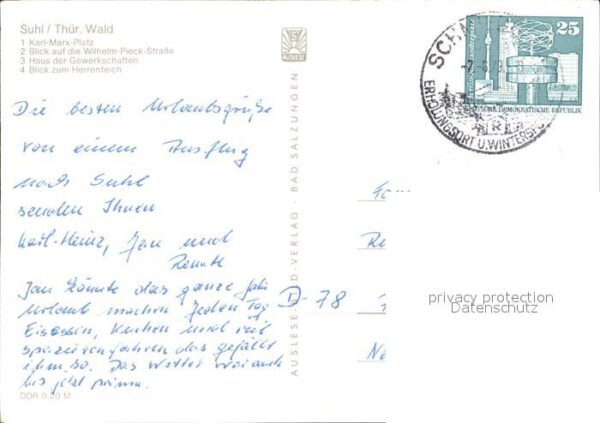 Suhl / Thür. Wald
1 Karl-Marx-Platz
2 Blick auf die Wilhelm-Pieck-Straße
3 Haus der Gewerkschaften
4 Blick zum Herrenteich
Die besten Urlaubsgrüße
von einem Ausflug
nach Suhl
senden Ihnen
Karl-Heinz, Jan und
Renate
Jan könnte das ganze Jahr
Urlaub machen. Jeden Tag
Eisessen, Kuchen und viel
spazierenfahren das gefällt
ihm so. Das Wetter war auch
bis jetzt prima.
DDR 0,20 M
AUSLESE-BILD-VERLAG · BAD SALZUNGEN
AUSLESE
25
DEUTSCHE DEMOKRATISCHE REPUBLIK
ERHOLUNGSORT U. WINTERSP
Fam
D-78
privacy protection
Datenschutz